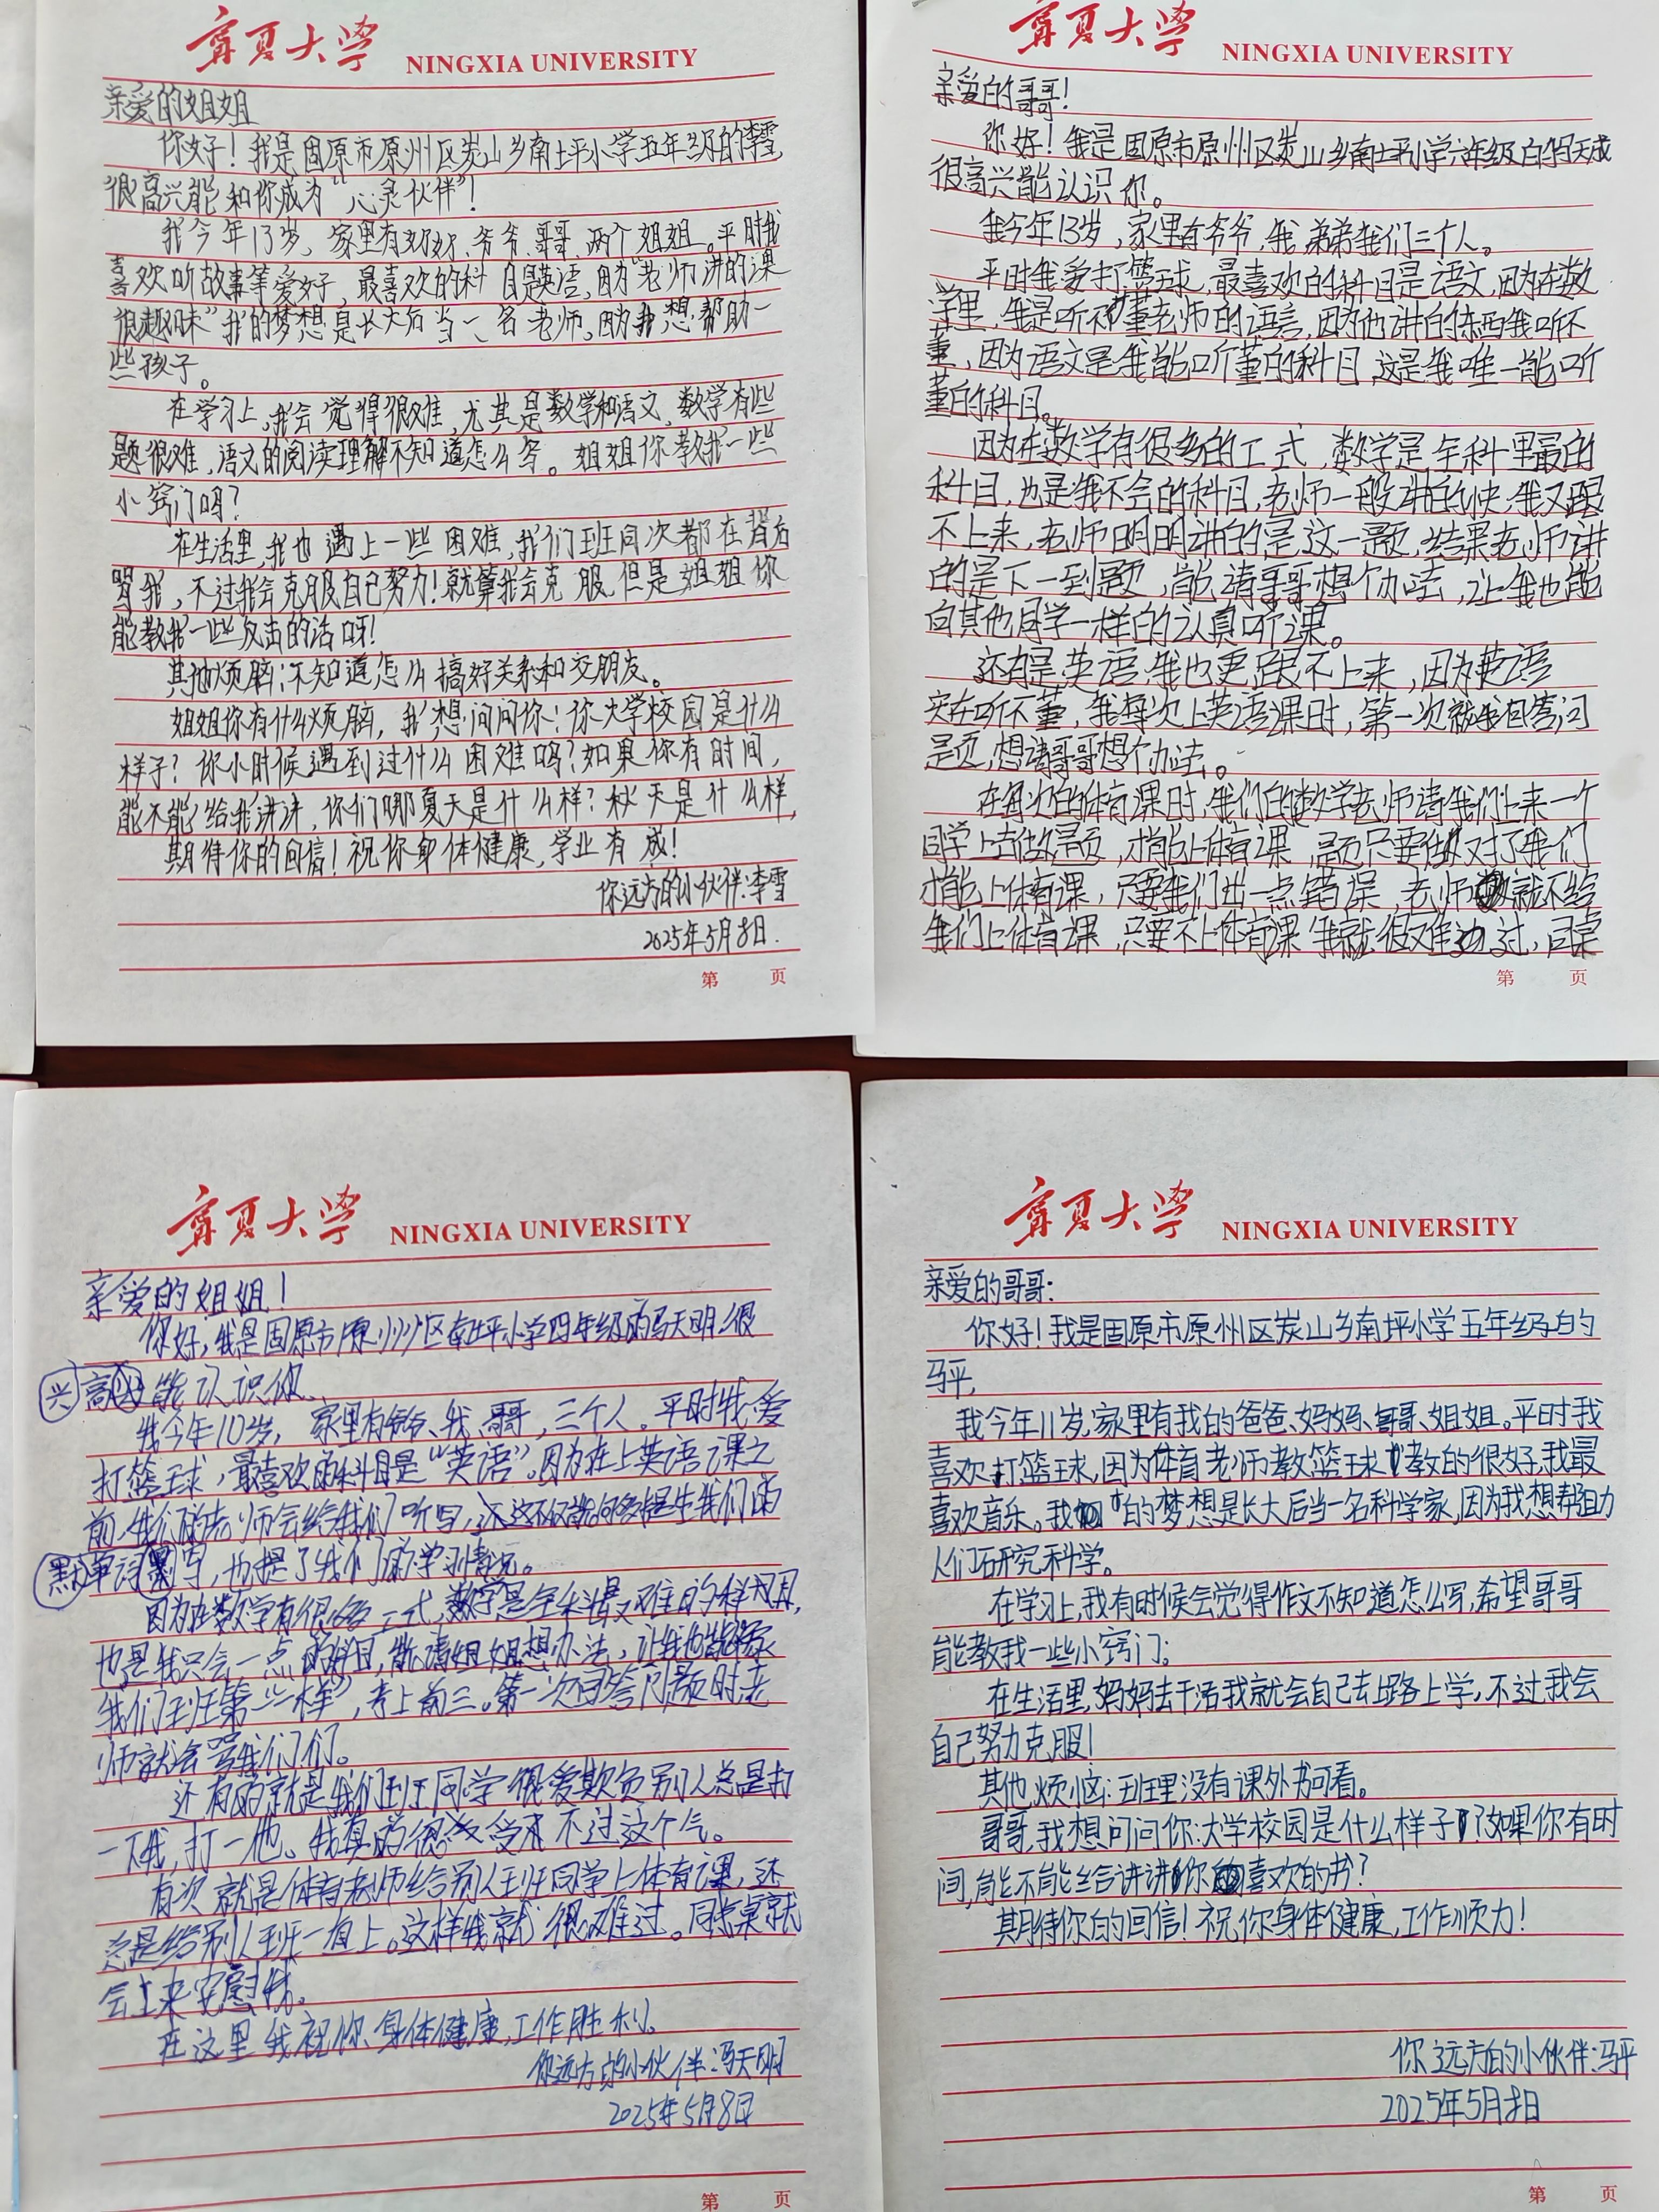 宁夏大学 NINGXIA UNIVERSITY
亲爱的姐姐
你好！我是固原市原州区炭山乡南坪小学五年级的李雪,
很高兴能和你成为“心灵伙伴”！
我今年13岁，家里有奶奶、爷爷、哥哥、两个姐姐。平时我
喜欢听故事等爱好，最喜欢的科目是英语，因为“老师讲的课
很趣味”我的梦想是长大后当一名老师，因为我想帮助一
些孩子。
在学习上，我会觉得很难，尤其是数学和语文，数学有些
题很难，语文的阅读理解不知道怎么写。姐姐你教我一些
小窍门吗？
在生活里，我也遇上一些困难，我们班同次都在背后
骂我，不过我会克服自己努力！就算我会克服，但是姐姐你
能教我一些反击的话呀！
其他烦脑：不知道怎么搞好关系和交朋友。
姐姐你有什么烦脑，我想问问你！你大学校园是什么
样子？你小时候遇到过什么困难吗？如果你有时间，
能不能给我讲讲，你们哪夏天是什么样？秋天是什么样,
期待你的回信！祝你身体健康，学业有成！
你远方的小伙伴：李雪
2025年5月8日.
第 页
宁夏大学 NINGXIA UNIVERSITY
亲爱的哥哥！
你好！我是固原市原州区炭山乡南坪小学六年级的冯天成
很高兴能认识你。
我今年13岁，家里有爷爷，我，弟弟我们三个人。
平时我爱打篮球，最喜欢的科目是语文，因为在数
学里，我是听不董老师的语言，因为他讲的东西我听不
董，因为语文是我能听董的科目，这是我唯一能听
董的科目。
因为在数学有很多的工式，数学是全科里最的
科目，也是我不会的科目，老师一般讲的快，我又跟
不上来，老师明明讲的是这一题，结果老师讲
的是下一到题，能请哥哥想个办法，让我也能
向其他同学一样的认真听课。
还有是英语，我也更跟不上来，因为英语
实在听不董，我每次上英语课时，第一次就我回答问
题，想请哥哥想个办法。
在每次的体育课时，我们的数学老师请我们上来一个
同学上去做题，才能上体育课，题只要做对了我们
才能上体育课，只要我们出一点错误，老师就不给
我们上体育课，只要不上体育课我就很难过，同桌
第 页
宁夏大学 NINGXIA UNIVERSITY
亲爱的姐姐！
你好，我是固原市原州区南坪小学四年级的冯天明，很
兴高能认识你.
我今年10岁，家里有爷爷、我、哥哥，三个人。平时我爱
打篮球，最喜欢的科目是“英语”。因为在上英语课之
前，我们的老师会给我们听写，这不仅能提我们的
默单词写，也提了我们的学习情况。
因为在数学有很多工式，数学是全科最难的科目,
也是我只会一点的科目，能请姐姐想办法，让我也能像
我们班第一“一样”，考上前三。第一次回答问题时老
师就会骂我们们。
还有的就是我们班同学很爱欺负别人总是打
一下我，打一他。我真的很受不过这个气。
有次就是体育老师给别人班同学上体育课，还
总是给别人班一直上。这样我就很难过。同桌就
会上来安慰我。
在这里我祝你身体健康，工作胜利。
你远方的小伙伴：冯天明
2025年5月8日
第 页
宁夏大学 NINGXIA UNIVERSITY
亲爱的哥哥：
你好！我是固原市原州区炭山乡南坪小学五年级的
马平,
我今年11岁，家里有我的爸爸、妈妈、哥哥、姐姐。平时我
喜欢打篮球，因为体育老师教篮球教的很好，我最
喜欢音乐。我的梦想是长大后当一名科学家，因为我想帮助
人们研究科学。
在学习上，我有时候会觉得作文不知道怎么写，希望哥哥
能教我一些小窍门；
在生活里，妈妈去干活我就会自己走路上学，不过我会
自己努力克服！
其他烦恼：班里没有课外书可看。
哥哥，我想问问你：大学校园是什么样子？如果你有时
间，能不能给讲讲你喜欢的书？
期待你的回信！祝你身体健康，工作顺力！
你远方的小伙伴：马平
2025年5月8日
第 页